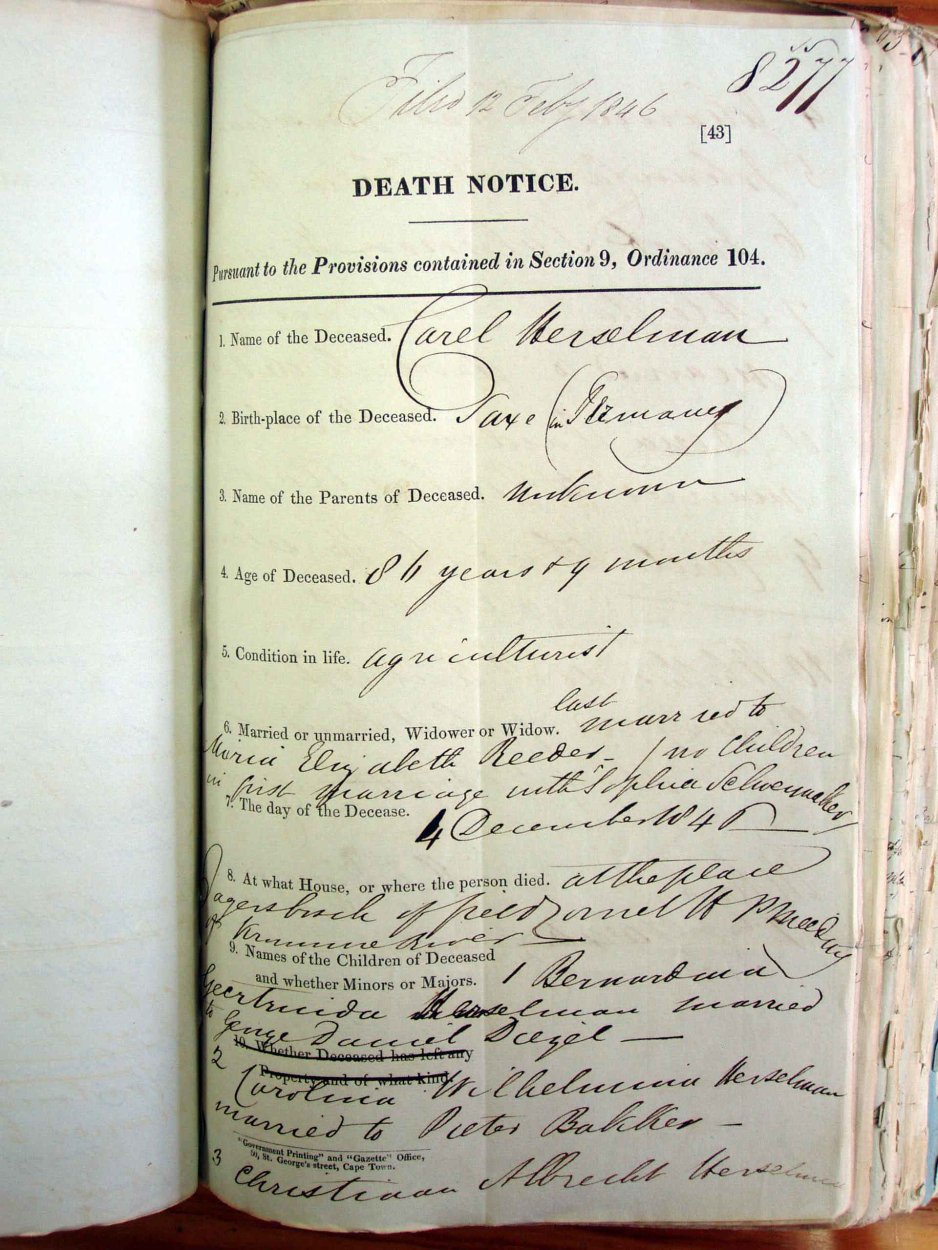 8277
Filed 12 Feby 1846
[43]
DEATH NOTICE.
Pursuant to the Provisions contained in Section 9, Ordinance 104.
1. Name of the Deceased. Carel Herselman
2. Birth-place of the Deceased. Saxe (in Germany)
3. Name of the Parents of Deceased. unknown
4. Age of Deceased. 86 years & 9 months
5. Condition in life. agriculturist
last
6. Married or unmarried, Widower or Widow. married to
Maria Elizabeth Reeder - (no Children
in first marriage with Sophia Schoemaker)
7. The day of the Decease. 4 December 1845
8. At what House, or where the person died. at the place
Jagersbosch of field Cornet H P
of Kromme River
9. Names of the Children of Deceased
and whether Minors or Majors. 1 Bernardina
Geertruida Herselman married
to George Daniel Diegel -
10. Whether Deceased has left any
Property and of what kind.
2 Carolina Wilhelmina Herselman
married to Pieter Bakker -
"Government Printing" and "Gazette" Office,
St. George's street, Cape Town.
3 Christiaan Albrecht Herselman